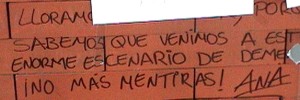 LLORAMO , POR
SABEMOS QUE VENIMOS A EST
ENORME ESCENARIO DE DEME
¡NO MÁS MENTIRAS! ANA